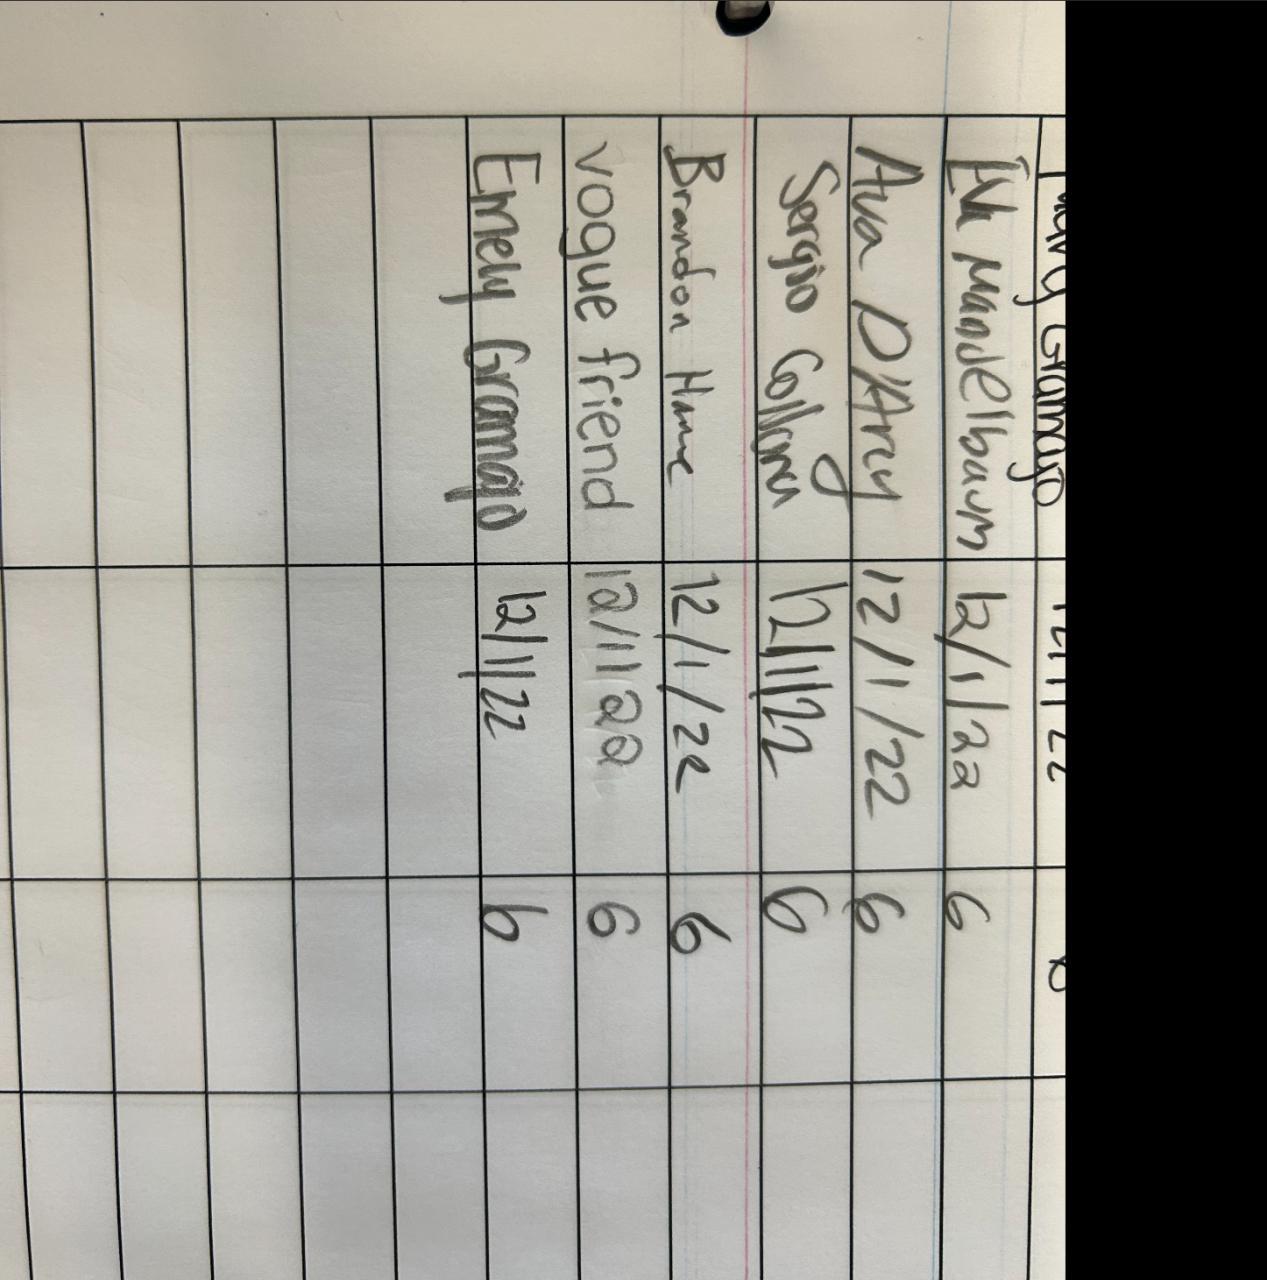 Gramajo 12/1/22
Mandelbaum 12/1/22 6
Ava D'Arcy 12/1/22 6
Sergio 12/1/22 6
Brandon 12/1/22 6
vogue friend 12/1/22 6
Emely Gramajo 12/1/22 6